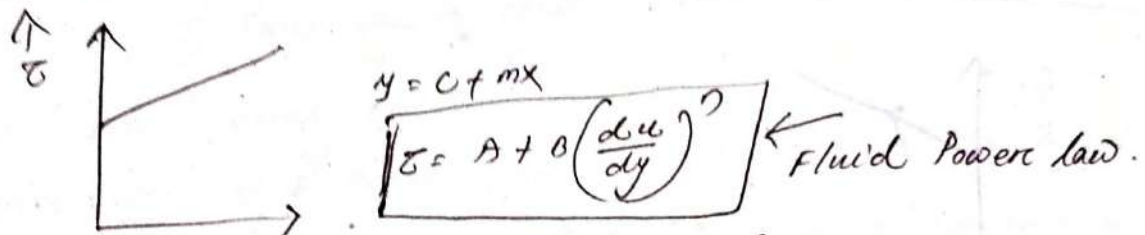 ↑
τ
y = c + mx
τ = A + B (du/dy)^n ← Fluid Power law.